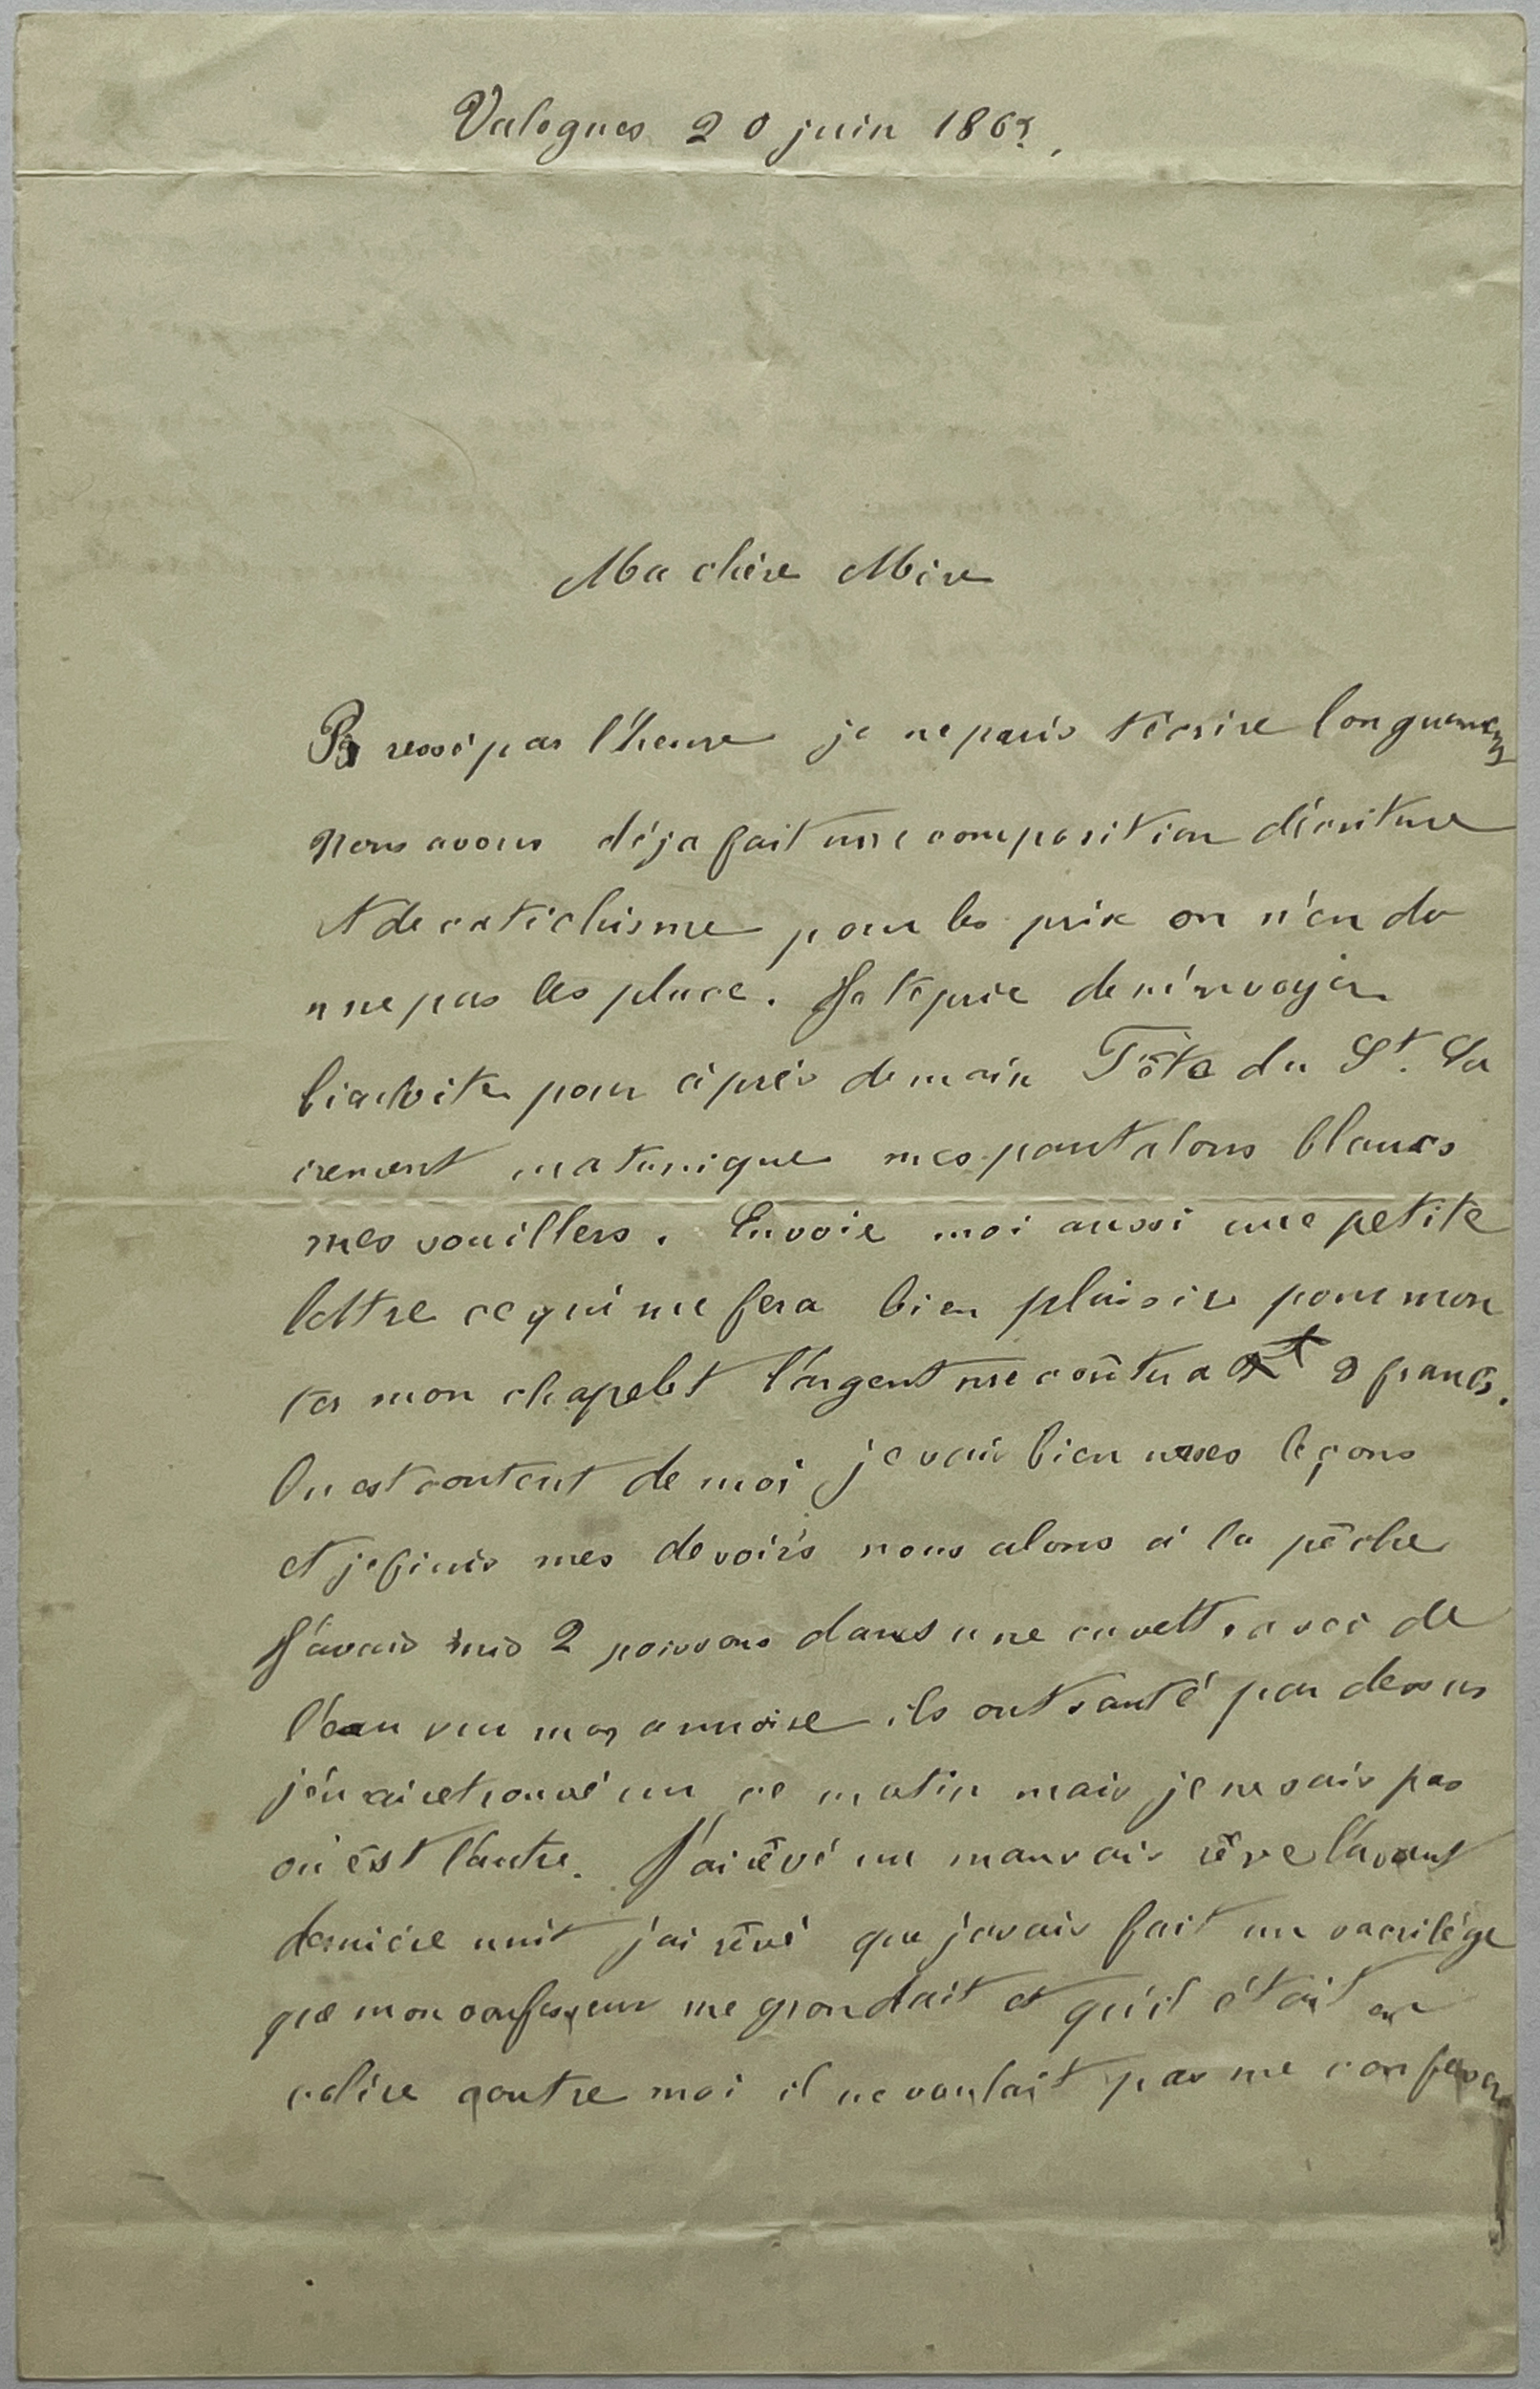 Valognes 20 juin 1865.
Ma chère Mère
Pressé par l'heure je ne puis t'écrire longuement
Nous avons déja fait une composition d'écriture
et de catéchisme pour les prix on n'en do
nne pas les place. Je te prie de m'envoyer
bien vite pour après demain Fête du St. Sa
crement ma tunique mes pantalons blancs
mes souillers. Envoie moi aussi une petite
lettre ce qui me fera bien plaisir pour mon
mon chapelet l'argent 8 francs.
On est content de moi je sais bien mes leçons
et je finis mes devoirs nous alons à la pêche
J'avais mis 2 poissons dans une cuvette avec de
l'eau sur mon armoire ils ont sauté par dessus
j'en ai retrouvé un ce matin mais je ne sais pas
où est l'autre. J'ai rêvé un mauvais rêve l'avant
dernière nuit j'ai rêvé que j'avais fait un sacrilége
que mon confesseur me grondait et qu'il était en
colère contre moi il ne voulait pas me confesser